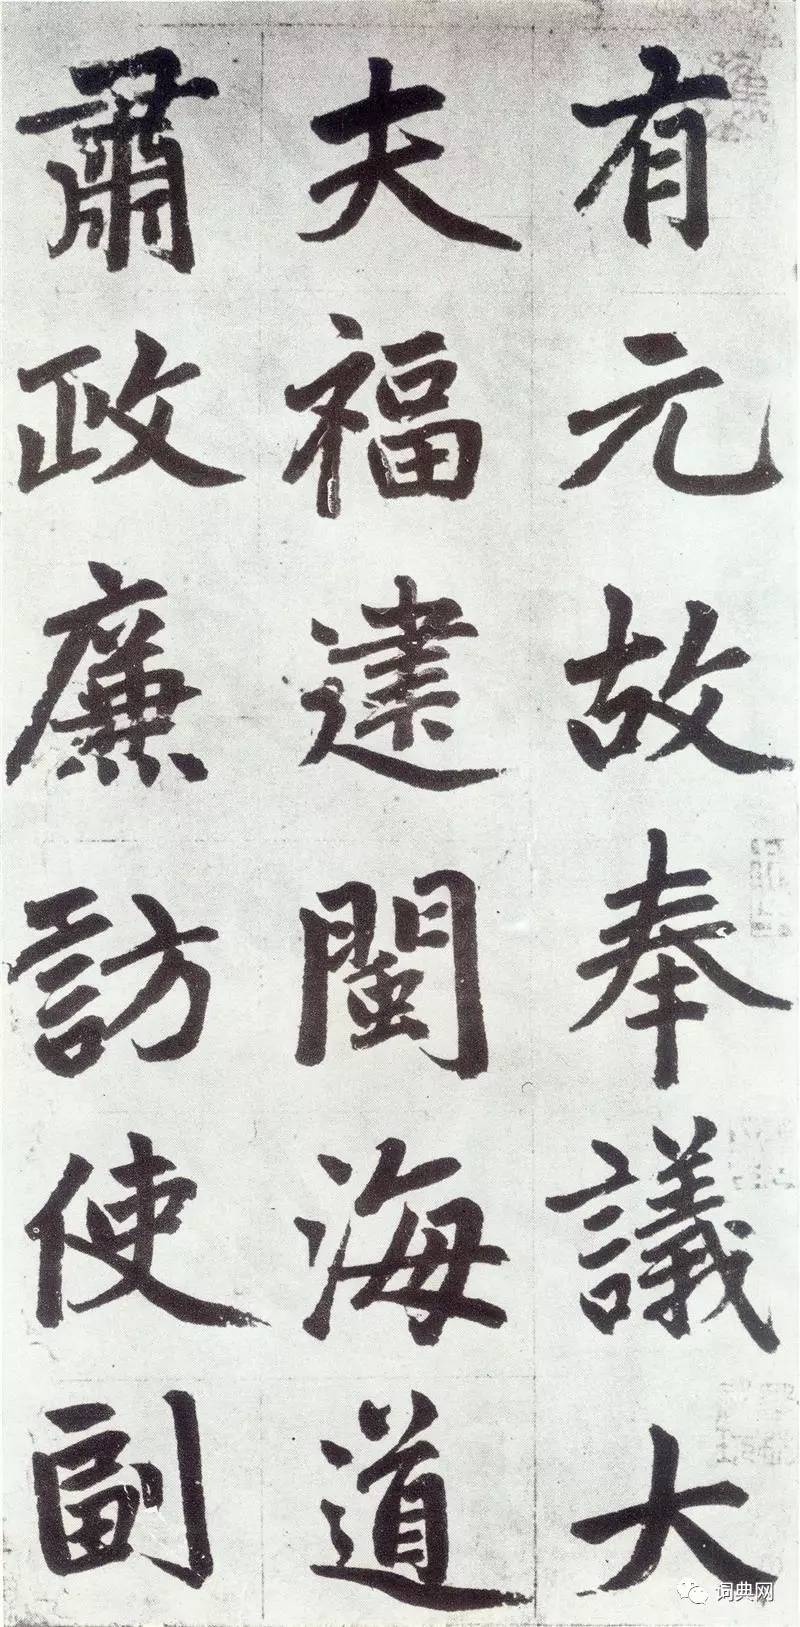 有元故奉議大
夫福建閩海道
肅政廉訪使副
词典网